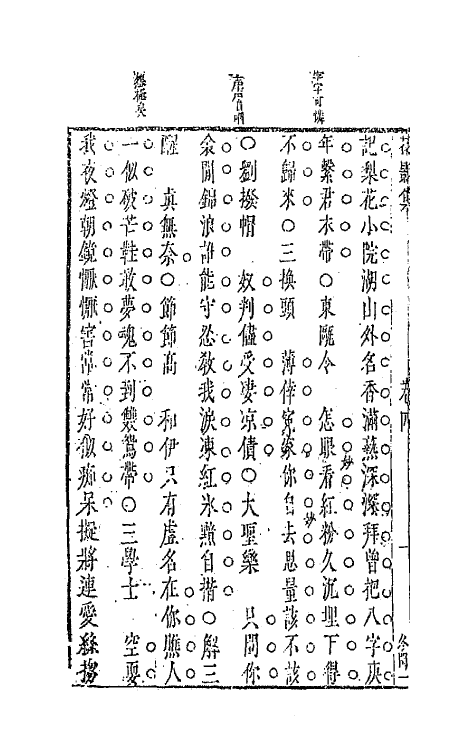 花影集 卷四
記梨花小院湖山外名香滿爇深深拜曾把八字庚
年繫君衣帶○東甌令 怎眼看紅粉久沉埋下得
不歸來○三換頭 薄倖冤家你自去思量該不該
○劉潑帽 奴判儘受凄凉債○大聖樂 只問你
衾閒錦浪誰能守忍敎我淚凍紅氷黯自揩○解三
酲 眞無奈○節節高 和伊只有虛名在你賺人
一似破芒鞋敢夢魂不到雙鴛帶○三學士 空耍
我夜燈朝鏡懨懨害常常好似痴呆擬將連愛絲搊
妙
妙